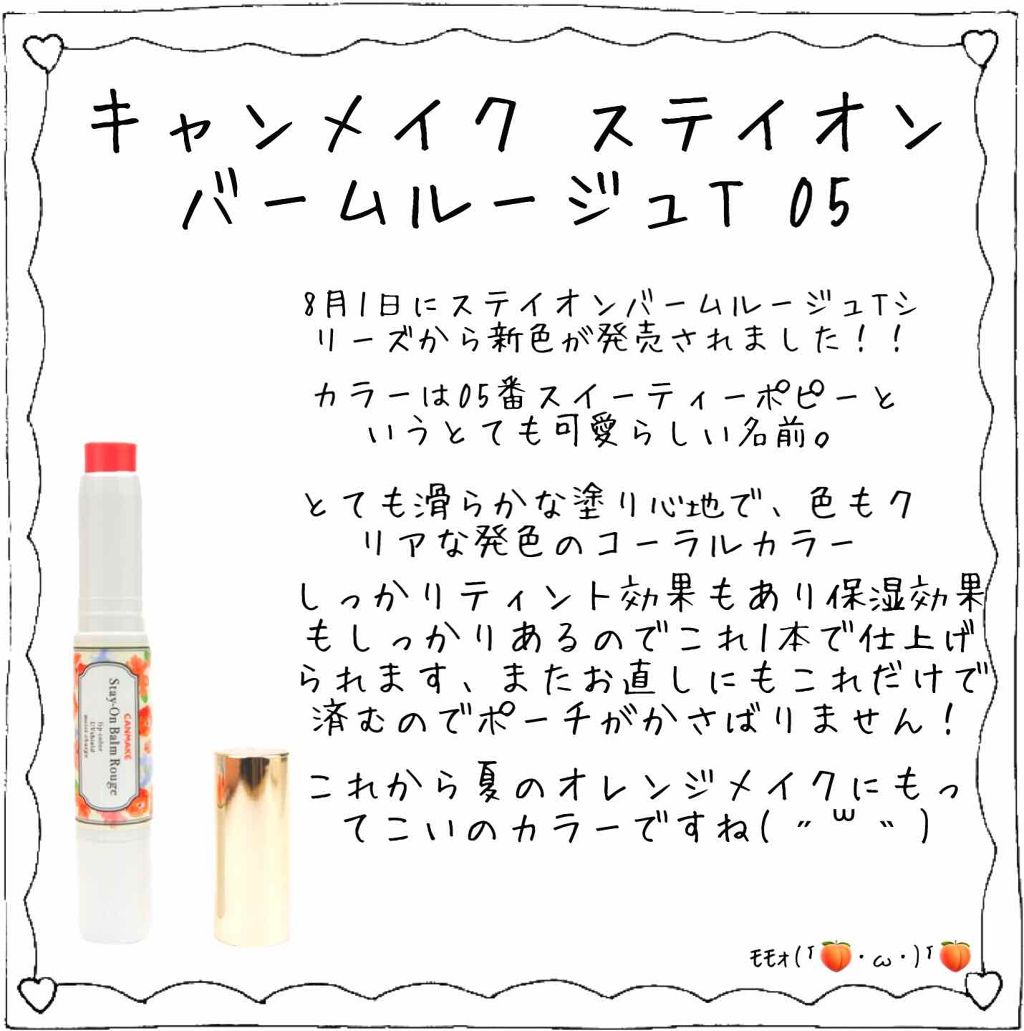 キャンメイク ステイオン
バームルージュT 05
8月1日にステイオンバームルージュTシ
リーズから新色が発売されました！！
カラーは05番スイーティーポピーと
いうとても可愛らしい名前。
とても滑らかな塗り心地で、色もク
リアな発色のコーラルカラー
しっかりティント効果もあり保湿効果
もしっかりあるのでこれ1本で仕上げ
られます、またお直しにもこれだけで
済むのでポーチがかさばりません！
これから夏のオレンジメイクにもっ
てこいのカラーですね( ˶ ᐜ ˵ )
CANMAKE
Stay-On Balm Rouge
lip color
UVshield
moist charge
ﾓﾓｫ(╭🍑・ω・)╭🍑